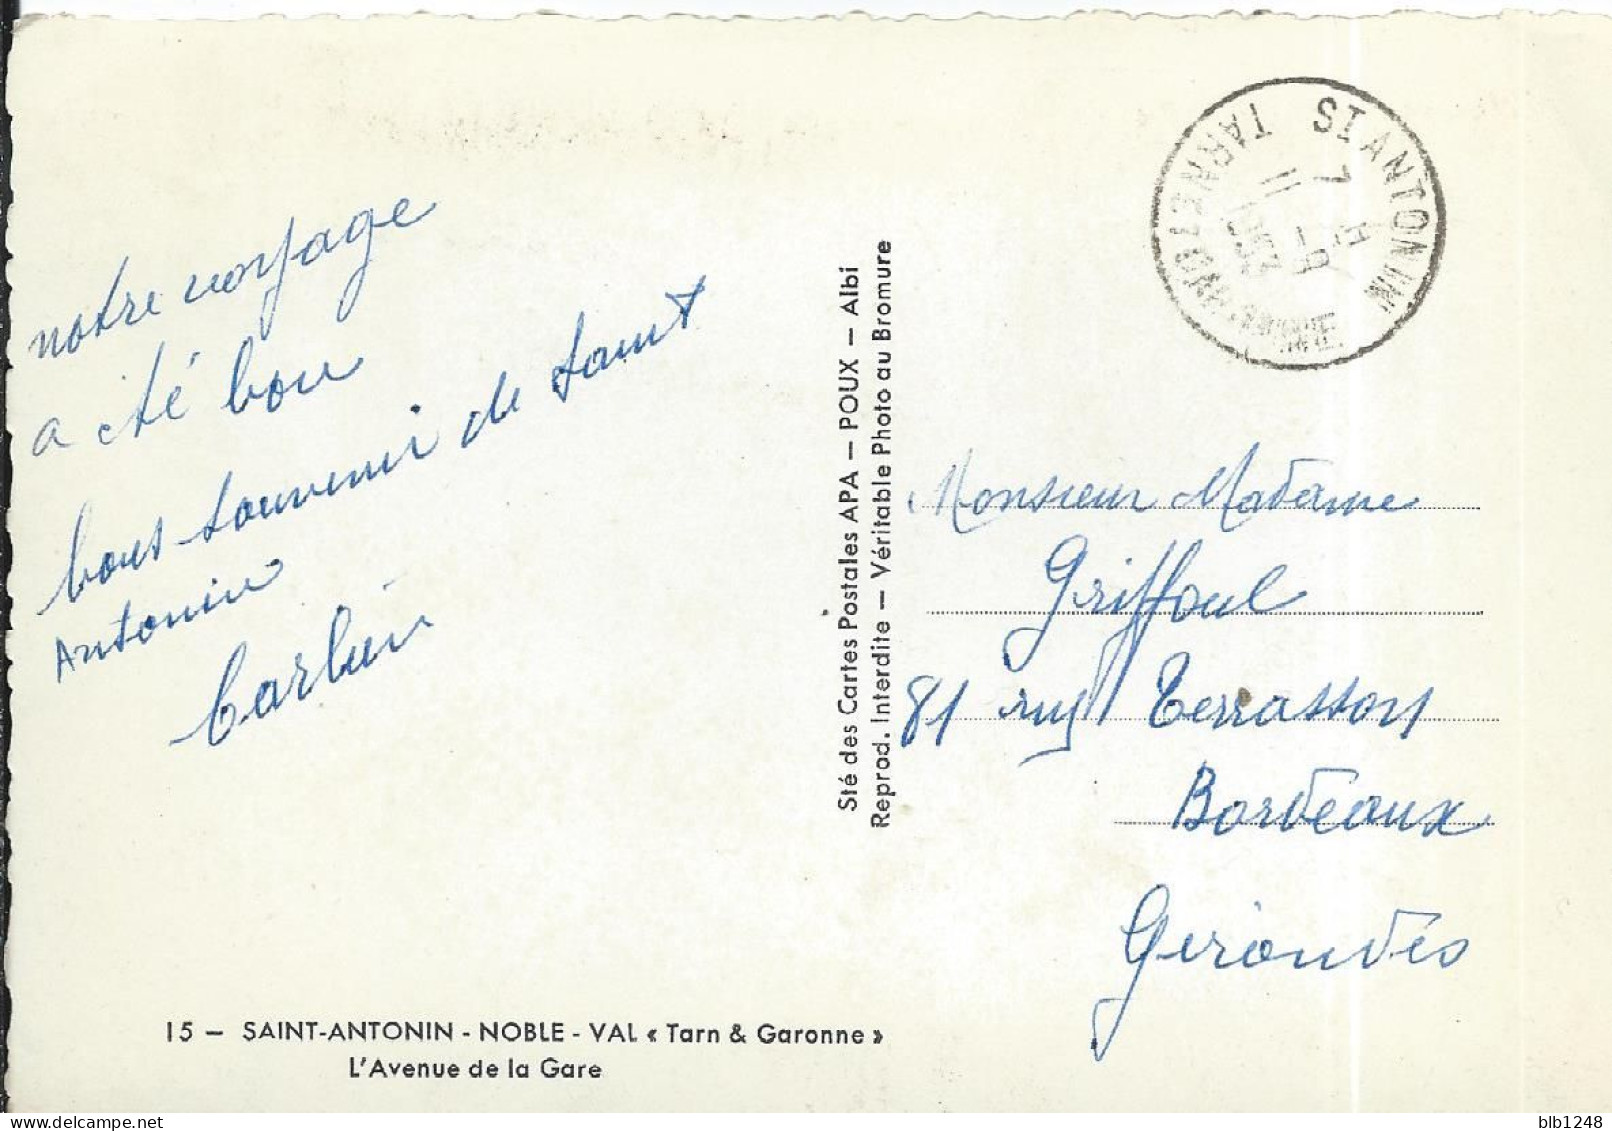 notre voyage
a été bon
bons souvenir de Saint
Antonin
15 – SAINT-ANTONIN - NOBLE - VAL « Tarn & Garonne »
L'Avenue de la Gare
Sté des Cartes Postales APA – POUX – Albi
Reprod. Interdite – Véritable Photo au Bromure
ST ANTONIN
TARN ET GARONNE
Monsieur Madame
Griffoul
81 ruy Terrasson
Bordeaux
Girondes
blb1248